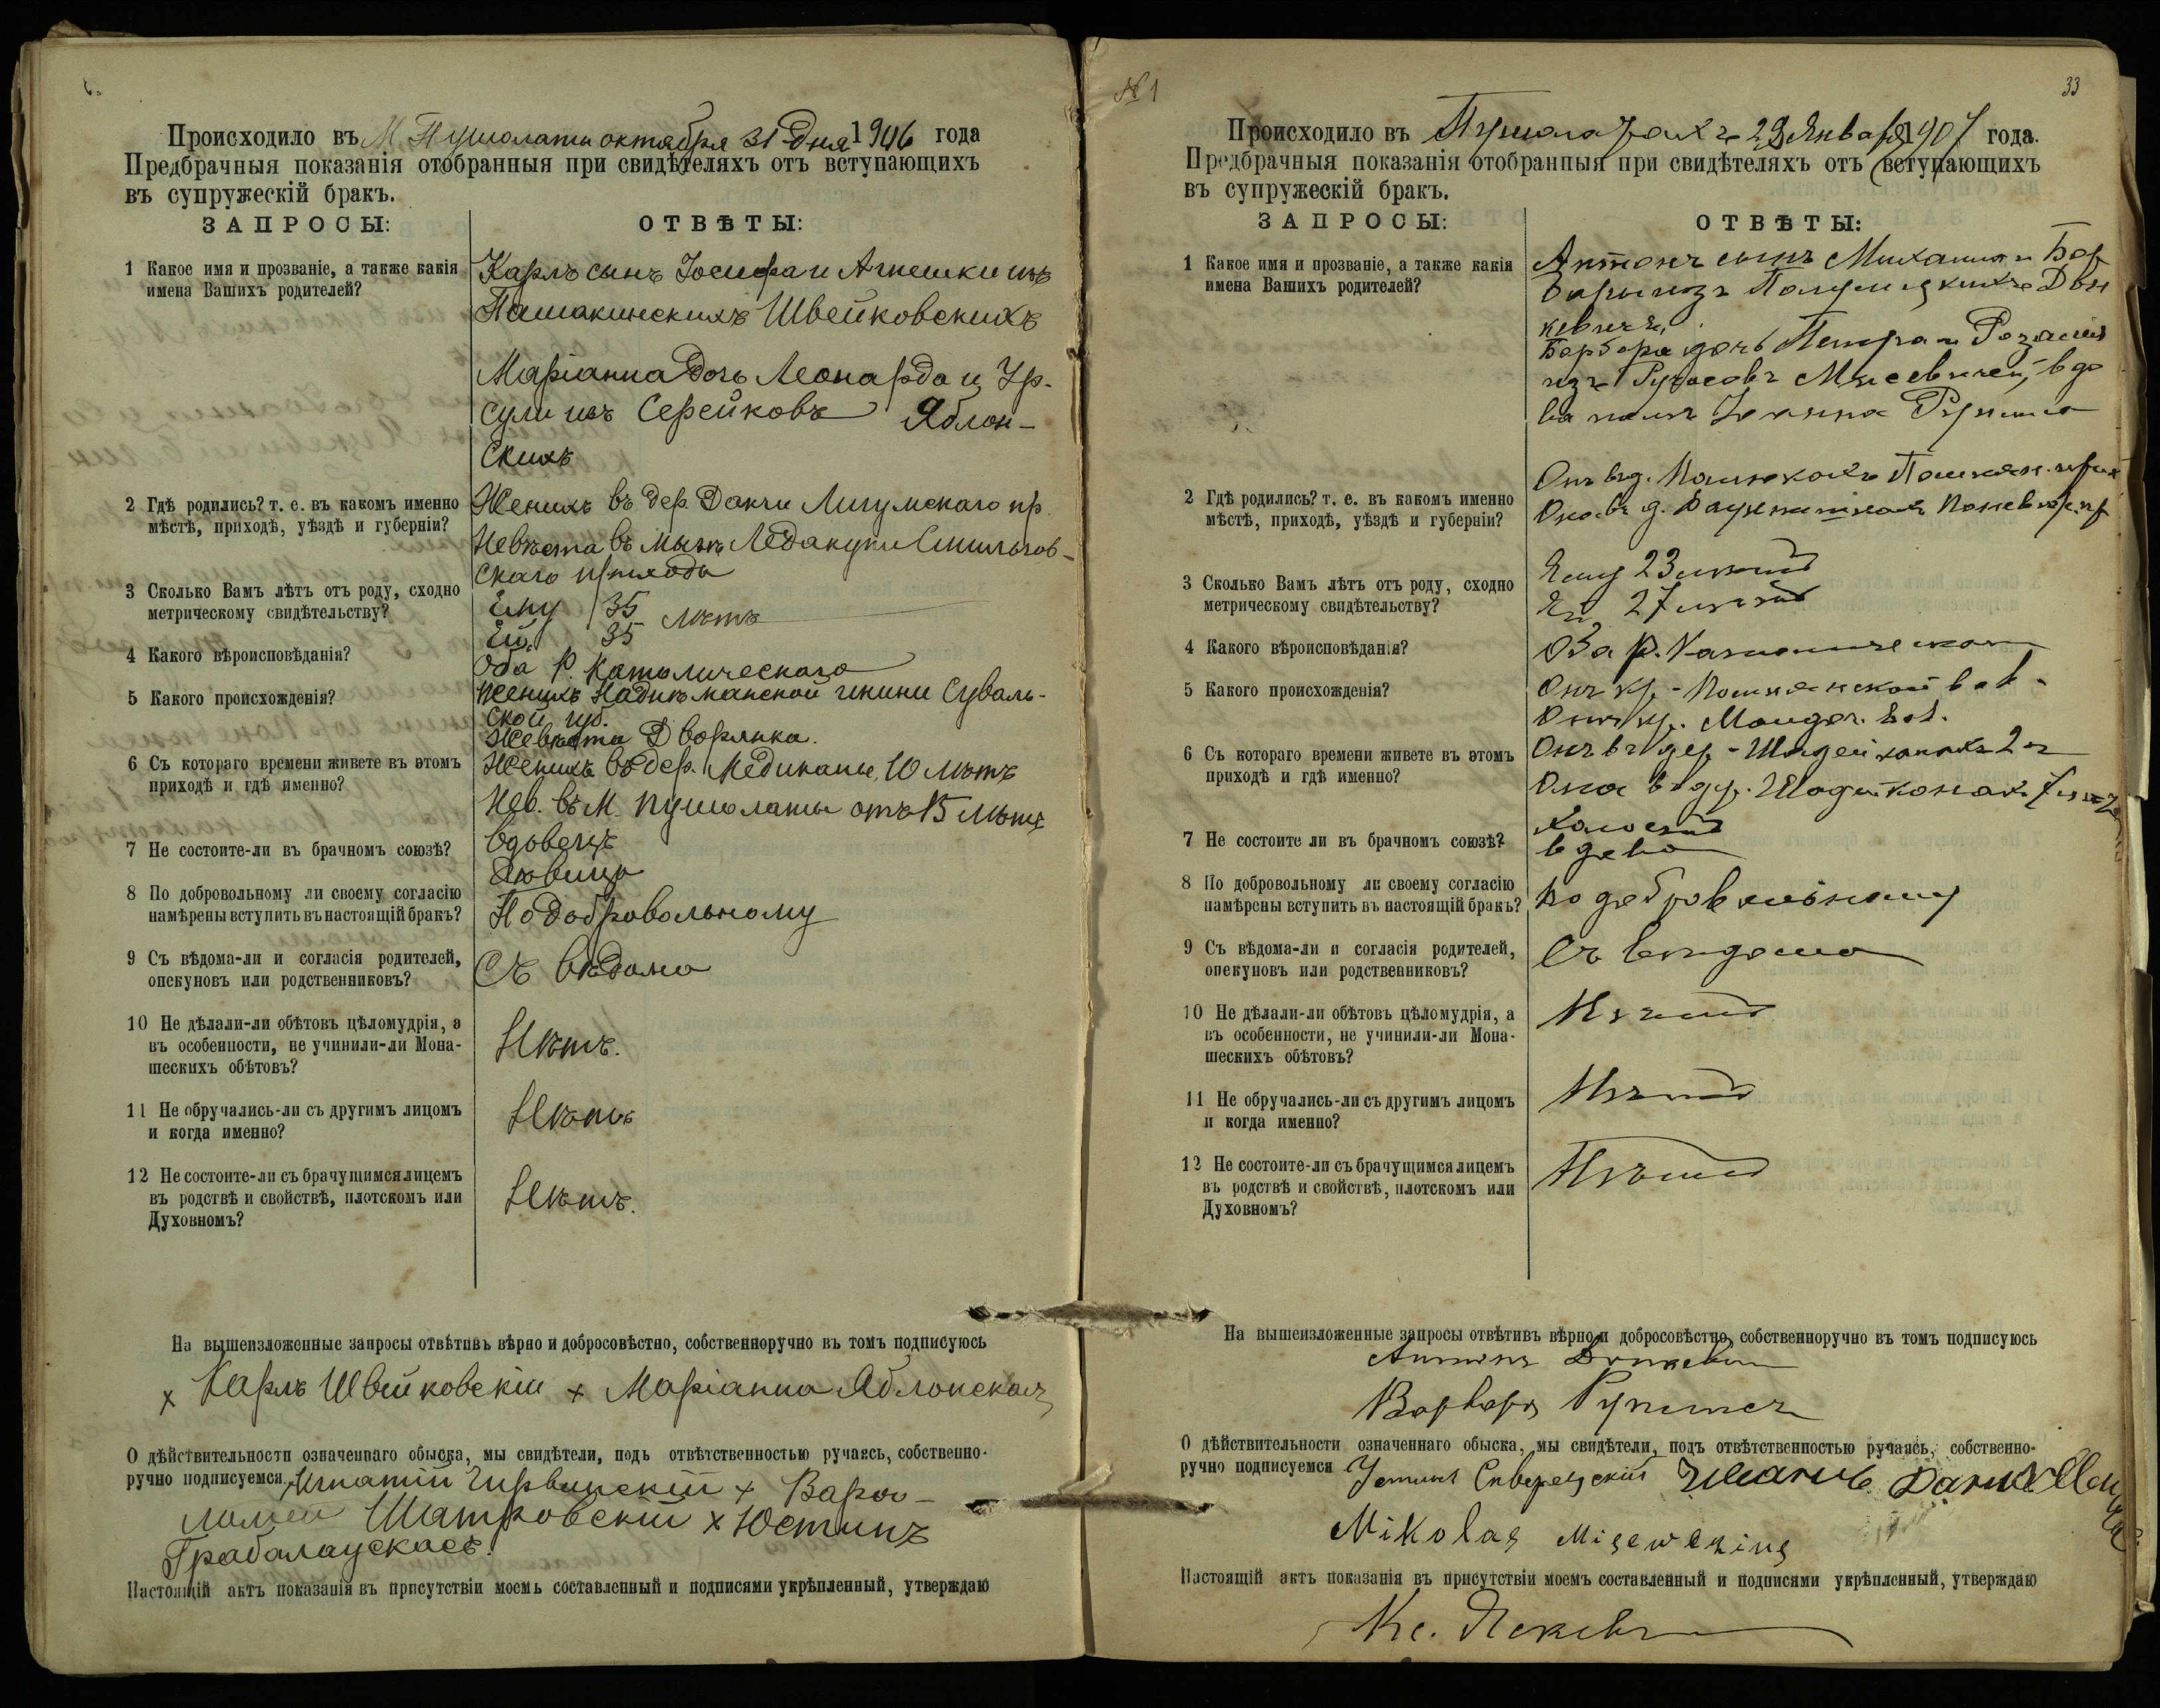 Происходило въ М. Пушолаты октября 31 дня 1906 года
Предбрачныя показанія отобранныя при свидѣтеляхъ отъ вступающихъ
въ супружескій бракъ.
ЗАПРОСЫ:
ОТВѢТЫ:
1 Какое имя и прозваніе, а также какія
имена Вашихъ родителей?
Карлъ сынъ Іосифа и Агнешки изъ
Пашакинскихъ Швейковскихъ
Маріанна дочь Леонарда и Ур-
сули изъ Серейковъ Яблон-
скихъ
2 Гдѣ родились? т. е. въ какомъ именно
мѣстѣ, приходѣ, уѣздѣ и губерніи?
Женихъ въ дер. Дакчи Лигумскаго пр.
Невѣста въ мызѣ Ледакупи Смильгов-
скаго прихода
3 Сколько Вамъ лѣтъ отъ роду, сходно
метрическому свидѣтельству?
Ему 35 лѣтъ
Ей 35
4 Какого вѣроисповѣданія?
Оба Р. Католическаго
5 Какого происхожденія?
Женихъ гмини Суваль-
ской губ.
Невѣста Дворянка.
6 Съ котораго времени живете въ этомъ
приходѣ и гдѣ именно?
Женихъ въ дер. Медикапы, 10 лѣтъ
Нев. въ М. Пушолаты отъ 15 лѣтъ
7 Не состоите-ли въ брачномъ союзѣ?
Вдовецъ
Дѣвица
8 По добровольному ли своему согласію
намѣрены вступить въ настоящій бракъ?
По добровольному
9 Съ вѣдома-ли и согласія родителей,
опекуновъ или родственниковъ?
Съ вѣдома
10 Не дѣлали-ли обѣтовъ цѣломудрія, а
въ особенности, не учинили-ли Мона-
шескихъ обѣтовъ?
Нѣтъ.
11 Не обручались-ли съ другимъ лицомъ
и когда именно?
Нѣтъ
12 Не состоите-ли съ брачущимся лицемъ
въ родствѣ и свойствѣ, плотскомъ или
Духовномъ?
Нѣтъ.
На вышеизложенные запросы отвѣтивъ вѣрно и добросовѣстно, собственноручно въ томъ подписуюсь
x Карлъ Швейковскій x Маріанна Яблонская
О дѣйствительности означеннаго обыска, мы свидѣтели, подъ отвѣтственностью ручаясь, собственно-
ручно подписуемся Игнатій Чирвинскій x Варѳо-
ломей Шатровскій x Юстинъ
Грабалаускасъ.
Настоящій актъ показанія въ присутствіи моемъ составленный и подписями укрѣпленный, утверждаю
№ 1
33
Происходило въ Пушолатахъ 29 Января 1907 года.
Предбрачныя показанія отобранныя при свидѣтеляхъ отъ вступающихъ
въ супружескій бракъ.
ЗАПРОСЫ:
ОТВѢТЫ:
1 Какое имя и прозваніе, а также какія
имена Вашихъ родителей?
Антонъ сынъ Михаила и Бар
бары изъ
Барбара дочь Петра и Розаліи
изъ Мисевичей, вдо
ва
2 Гдѣ родились? т. е. въ какомъ именно
мѣстѣ, приходѣ, уѣздѣ и губерніи?
Онъ въ д.
Она въ д.
3 Сколько Вамъ лѣтъ отъ роду, сходно
метрическому свидѣтельству?
Ему 23 лѣтъ
Ей 27 лѣтъ
4 Какого вѣроисповѣданія?
Оба р. Католическаго
5 Какого происхожденія?
Онъ кр.
6 Съ котораго времени живете въ этомъ
приходѣ и гдѣ именно?
Онъ въ дер.
Она въ дер.
7 Не состоите ли въ брачномъ союзѣ?
Холостъ
вдова
8 По добровольному ли своему согласію
намѣрены вступить въ настоящій бракъ?
По добровольному
9 Съ вѣдома-ли и согласія родителей,
опекуновъ или родственниковъ?
Съ вѣдома
10 Не дѣлали-ли обѣтовъ цѣломудрія, а
въ особенности, не учинили-ли Мона-
шескихъ обѣтовъ?
Нѣтъ
11 Не обручались-ли съ другимъ лицомъ
и когда именно?
Нѣтъ
12 Не состоите-ли съ брачущимся лицемъ
въ родствѣ и свойствѣ, плотскомъ или
Духовномъ?
Нѣтъ
На вышеизложенные запросы отвѣтивъ вѣрно и добросовѣстно, собственноручно въ томъ подписуюсь
Антонъ
Варвара
О дѣйствительности означеннаго обыска, мы свидѣтели, подъ отвѣтственностью ручаясь, собственно-
ручно подписуемся
Mikolas Misewczius
Настоящій актъ показанія въ присутствіи моемъ составленный и подписями укрѣпленный, утверждаю
Кс.